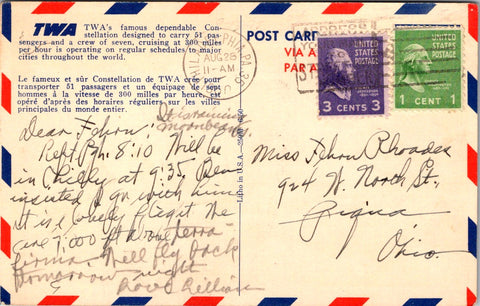 TWA
TWA's famous dependable Con-
stellation designed to carry 51 pas-
sengers and a crew of seven, cruising at 300 miles
per hour is operating on regular schedules to major
cities throughout the world.
Le fameux et sûr Constellation de TWA crée pour
transporter 51 passagers et un équipage de sept
hommes à la vitesse de 300 milles par heure, est
opéré d'après des horaires réguliers, sur les villes
principales du monde entier.
AUG 26
11-AM
Dear Fehrn:
Left Pgh. 8:10 Will be
in Philly at 9:35. Ben
insisted I go with him
It is lovely flight The
are 7,000 ft above terra-
firma. Will fly back
tomorrow night
Love Lillian
Litho in U.S.A.
POST CARD
VIA A
PAR A
UNITED
STATES
POSTAGE
3 CENTS 3
UNITED
STATES
POSTAGE
1 CENT 1
Miss Fehrn Rhoades
924 W. North St.,
Piqua
Ohio.